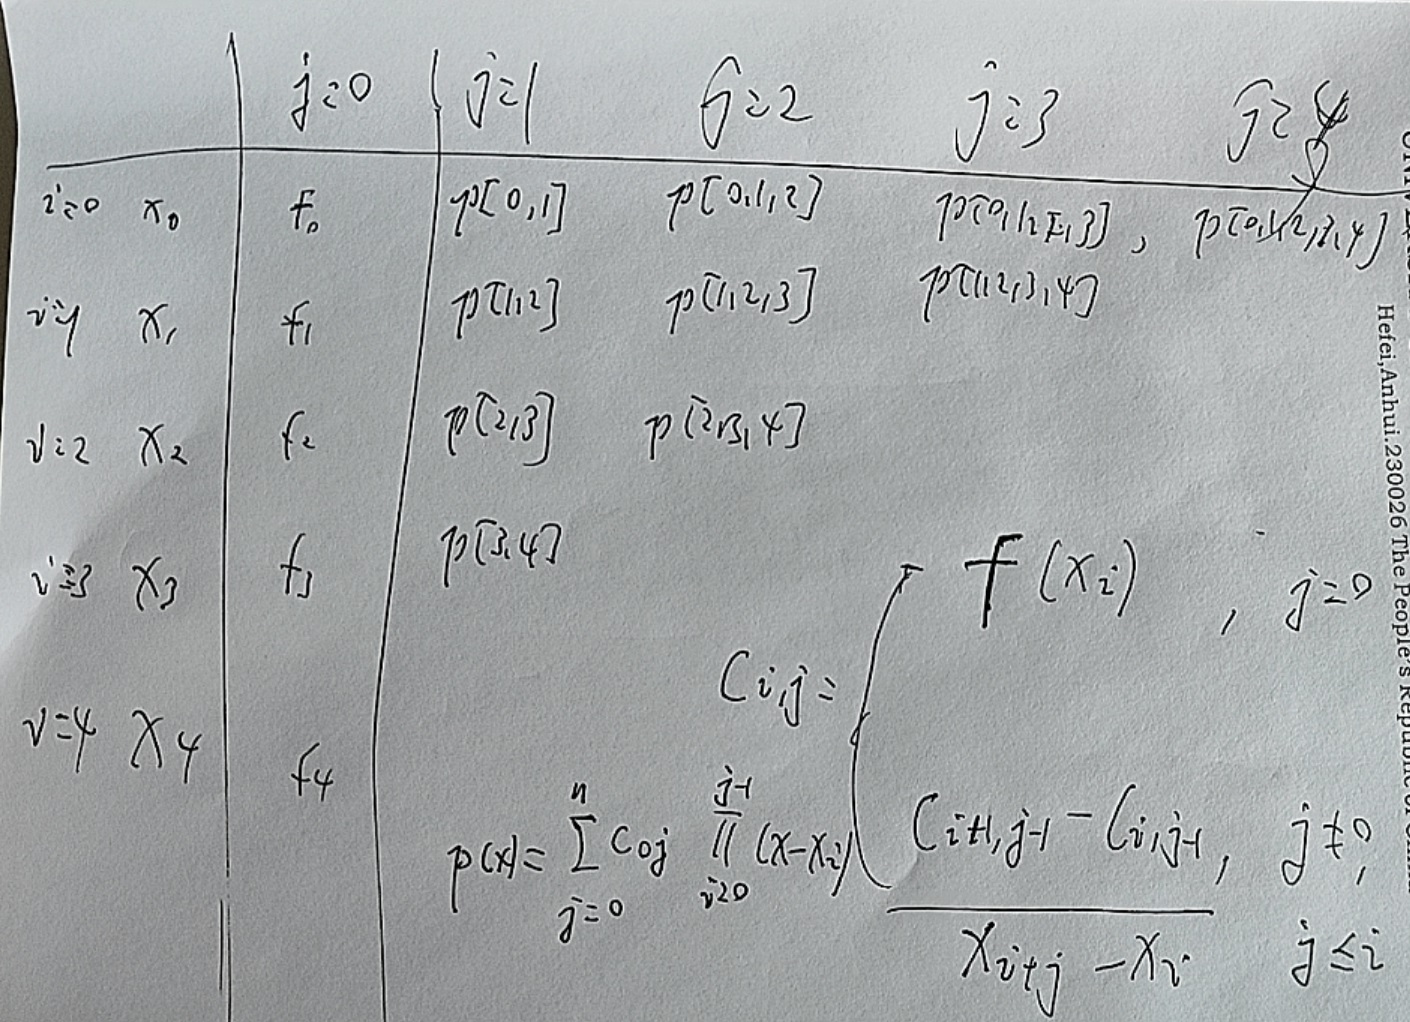 j=0 j=1 j=2 j=3 j=4
i=0 x₀ f₀ p[0,1] p[0,1,2] p[0,1,2,3], p[0,1,2,3,4]
i=1 x₁ f₁ p[1,2] p[1,2,3] p[1,2,3,4]
i=2 x₂ f₂ p[2,3] p[2,3,4]
i=3 x₃ f₃ p[3,4]
i=4 x₄ f₄
C i,j = f(xᵢ), j=0
C i+1,j-1 - C i,j-1, j≠0,
x i+j - x i j≤i
p(x)= Σ j=0 n C₀j Π i=0 j-1 (x-xᵢ)
Hefei,Anhui.230026 The People's Republic of China